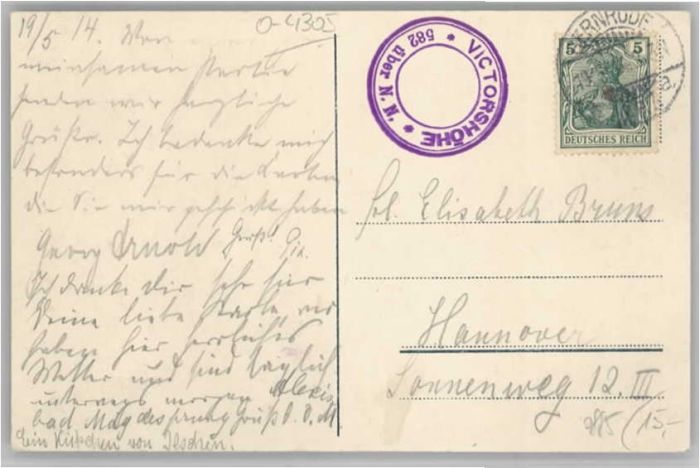 19/5 14. Von
O-4305
meinsamen Partie
senden wir herzliche
Grüße. Ich bedanke mich
besonders für die Karten
die Sie mir geschickt haben
Georg Arnold Gruß!
Ich danke Dir sehr für
Deine liebe Karte, wir
haben hier herrliches
Wetter und sind täglich
unterwegs morgen Alexis
bad Mägdesprung Gruß
Ein Küßchen von
* VICTORSHÖHE *
582 über N. N.
ERNRODE
5 5
DEUTSCHES REICH
Frl. Elisabeth Bruns
Hannover
Sonnenweg 12. III
15,-